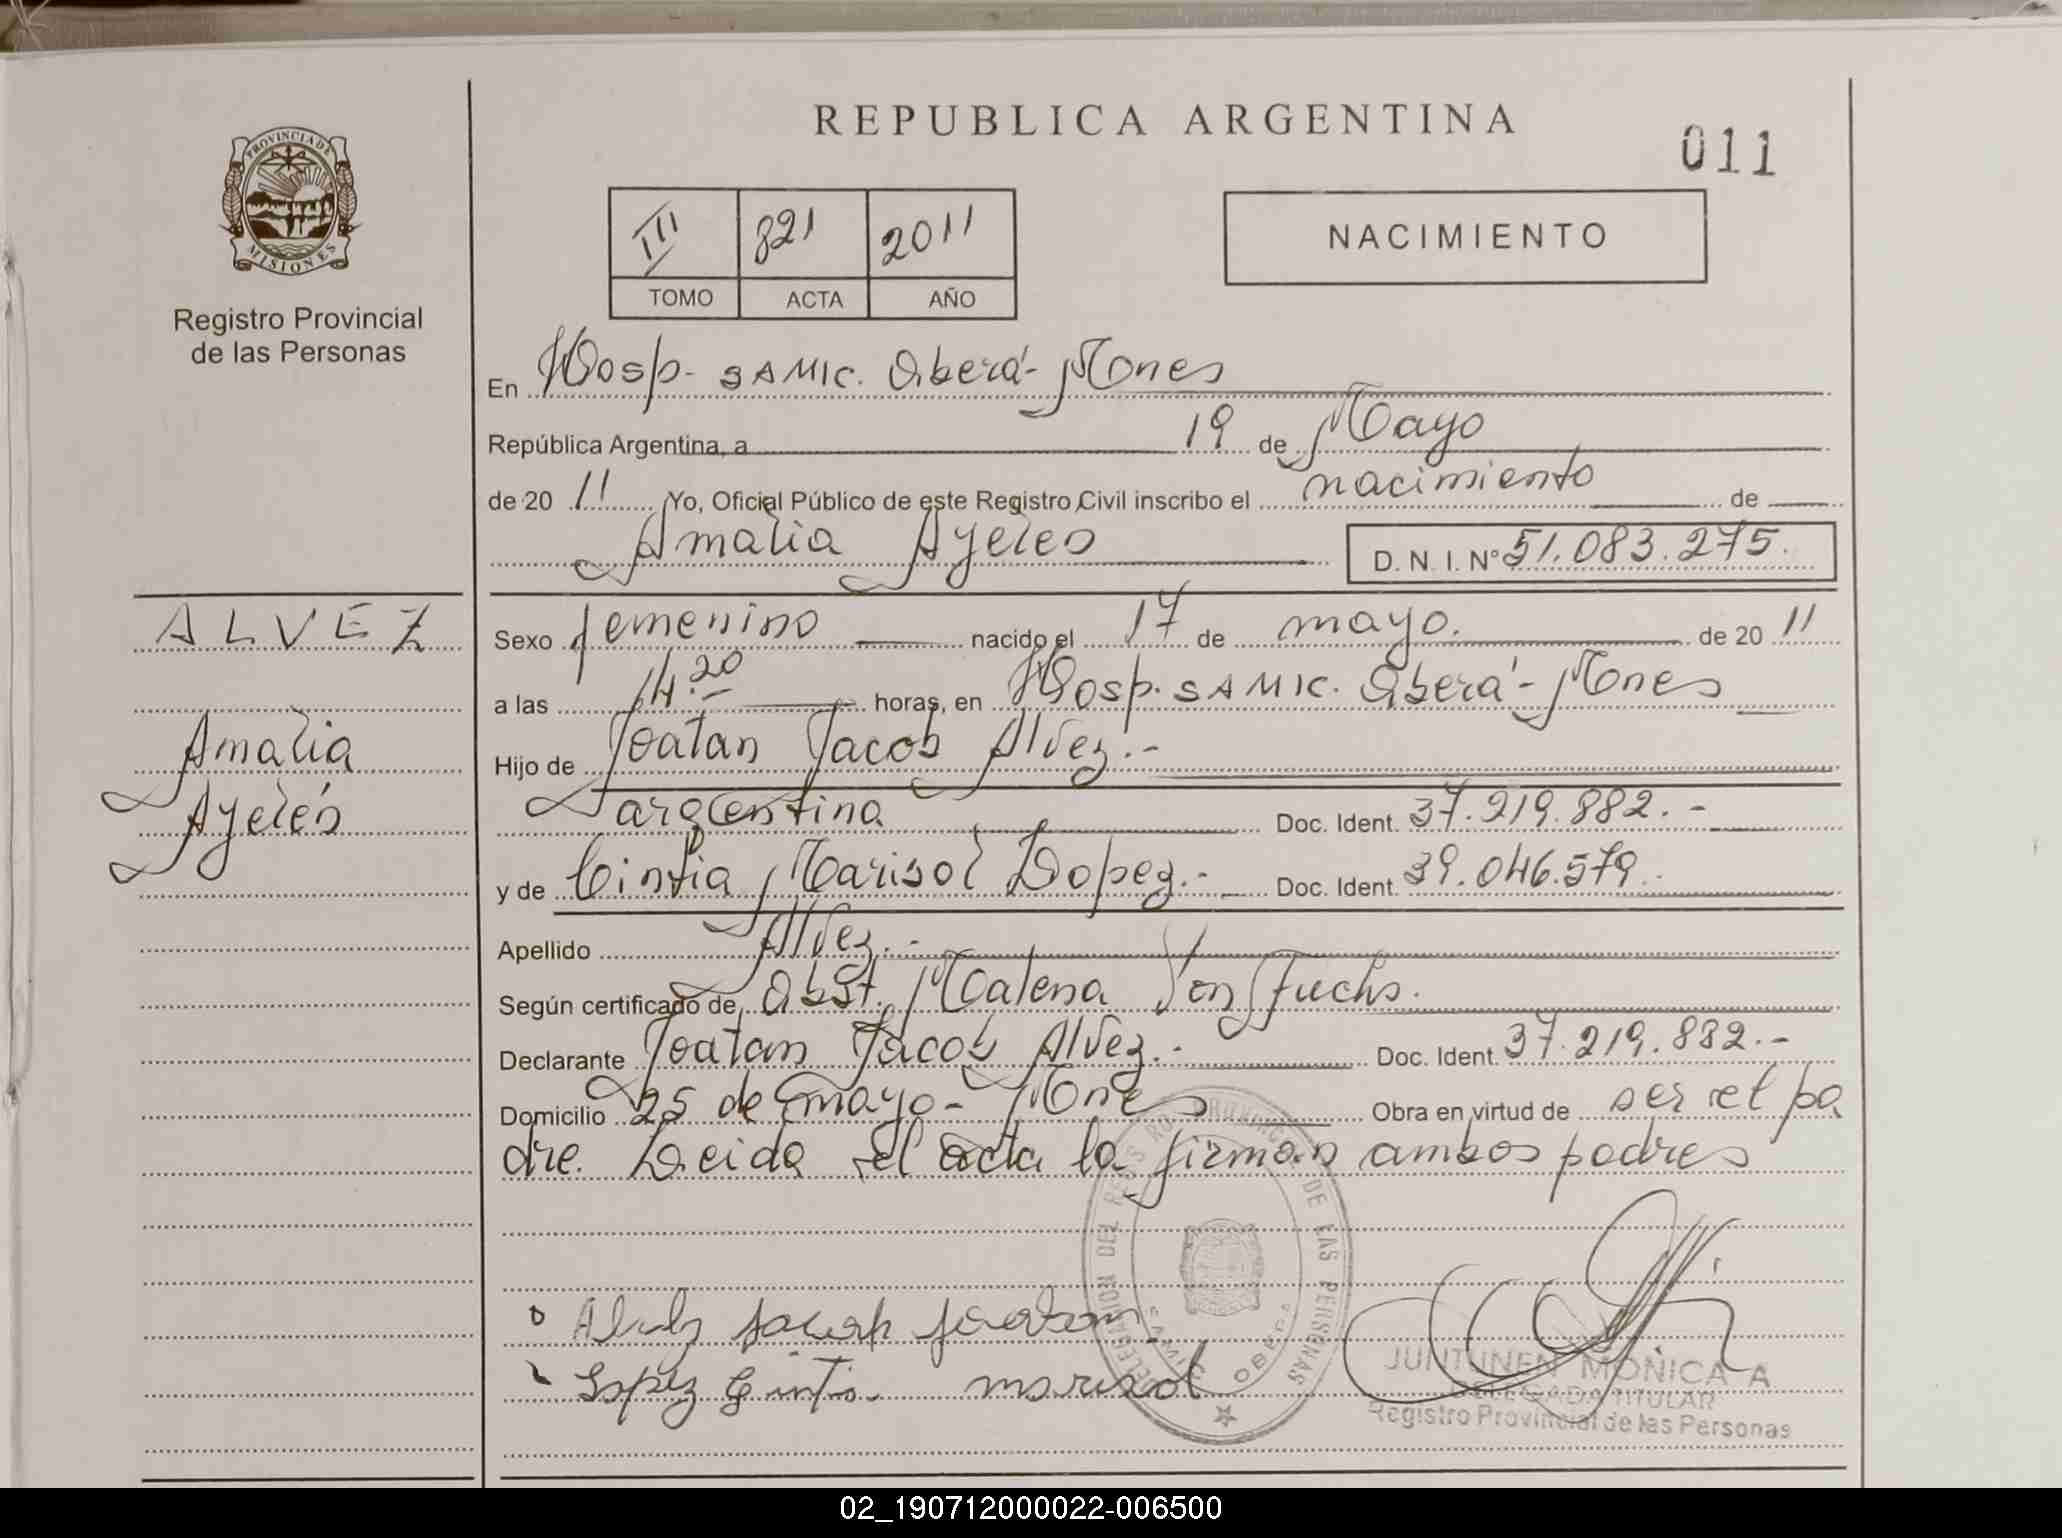 REPUBLICA ARGENTINA
011
PROVINCIA DE
MISIONES
Registro Provincial
de las Personas
III 821 2011
TOMO ACTA AÑO
NACIMIENTO
En Hosp. SAMIC. Oberá - Mones
República Argentina, a 19 de Mayo
de 20 11 Yo, Oficial Público de este Registro Civil inscribo el nacimiento de
Amalia Ayeles
D. N. I. Nº 51.083.275.
ALVEZ
Amalia
Ayelés
Sexo femenino nacido el 17 de mayo. de 20 11
a las 14.20 horas, en Hosp. SAMIC. Oberá - Mones
Hijo de Joatan Jacob Alvez.-
argentina Doc. Ident. 37.219.882.-
y de Cintia Marisol Lopez.- Doc. Ident. 39.046.579.
Apellido Alvez.-
Según certificado de Obst. Malena Von Fuchs.
Declarante Joatan Jacob Alvez.- Doc. Ident. 37.219.882.-
Domicilio 25 de mayo - Mones Obra en virtud de ser el pa
dre. Leida el acta la firman ambos padres
Alvez Jacob Joatan
Lopez Cintia marisol
DELEGACION DEL REGISTRO PROVINCIAL DE LAS PERSONAS
SAMIC OBERA
JUNTUNEN MONICA A
DELEGADA TITULAR
Registro Provincial de las Personas
02_190712000022-006500